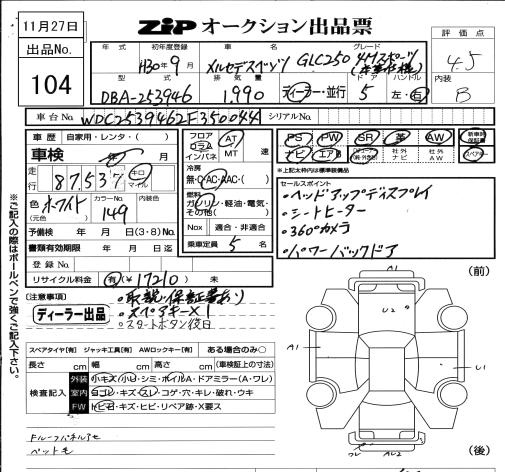 11月27日
ZiP オークション出品票
評価点
4.5
内装
B
出品No.
104
年式
初年度登録
H30年9月
車名
メルセデスベンツ GLC250
グレード
4Mスポーツ
(本革仕様)
型式
DBA-253946
排気量
1,990
ディーラー・並行
ドア
5
ハンドル
左・右
車台No.
WDC2539462F350044
シリアルNo.
車歴
自家用・レンタ・( )
車検
年 月
走行
87,537
キロ
マイル
色
ホワイト
(元色)
カラーNo.
149
内装色
予備検 年 月 日(3・8)No.
書類有効期限 年 月 日迄
登録No.
リサイクル料金
有(¥17210) 未
フロア
コラム
インパネ
AT
MT
速
冷房
無・C・AC・AAC・( )
燃料
ガソリン・軽油・電気・
その他( )
Nox
適合・非適合
乗車定員
5
名
PS
PW
SR
革
AW
新車時保証書
ナビ
エアB
社外ナビ
社外AW
スペアキー
*上記太枠内は標準装備品
セールスポイント
・ヘッドアップディスプレイ
・シートヒーター
・360°カメラ
・パワーバックドア
(注意事項)
ディーラー出品
・取説・保証書あり
・スペアキー×1
・スタートボタン後日
スペアタイヤ[有] ジャッキ工具[有] AWロックキー[有] ある場合のみ○
長さ cm 幅 cm 高さ cm (車検証上の寸法)
検査記入
外装
小キズ/小U・シミ・ボイルA・ドアミラー(A・ワレ)
室内
ヨゴレ・キズ・スレ・コゲ・穴・キレ・破れ・ウキ
FW
トビ石・キズ・ヒビ・リペア跡・X要ス
ドルーフパネルアセ
ペット毛
※ご記入の際はボールペンで強くご記入下さい。
(前)
(後)
A1
U2
A1
U1
ワレ
A2